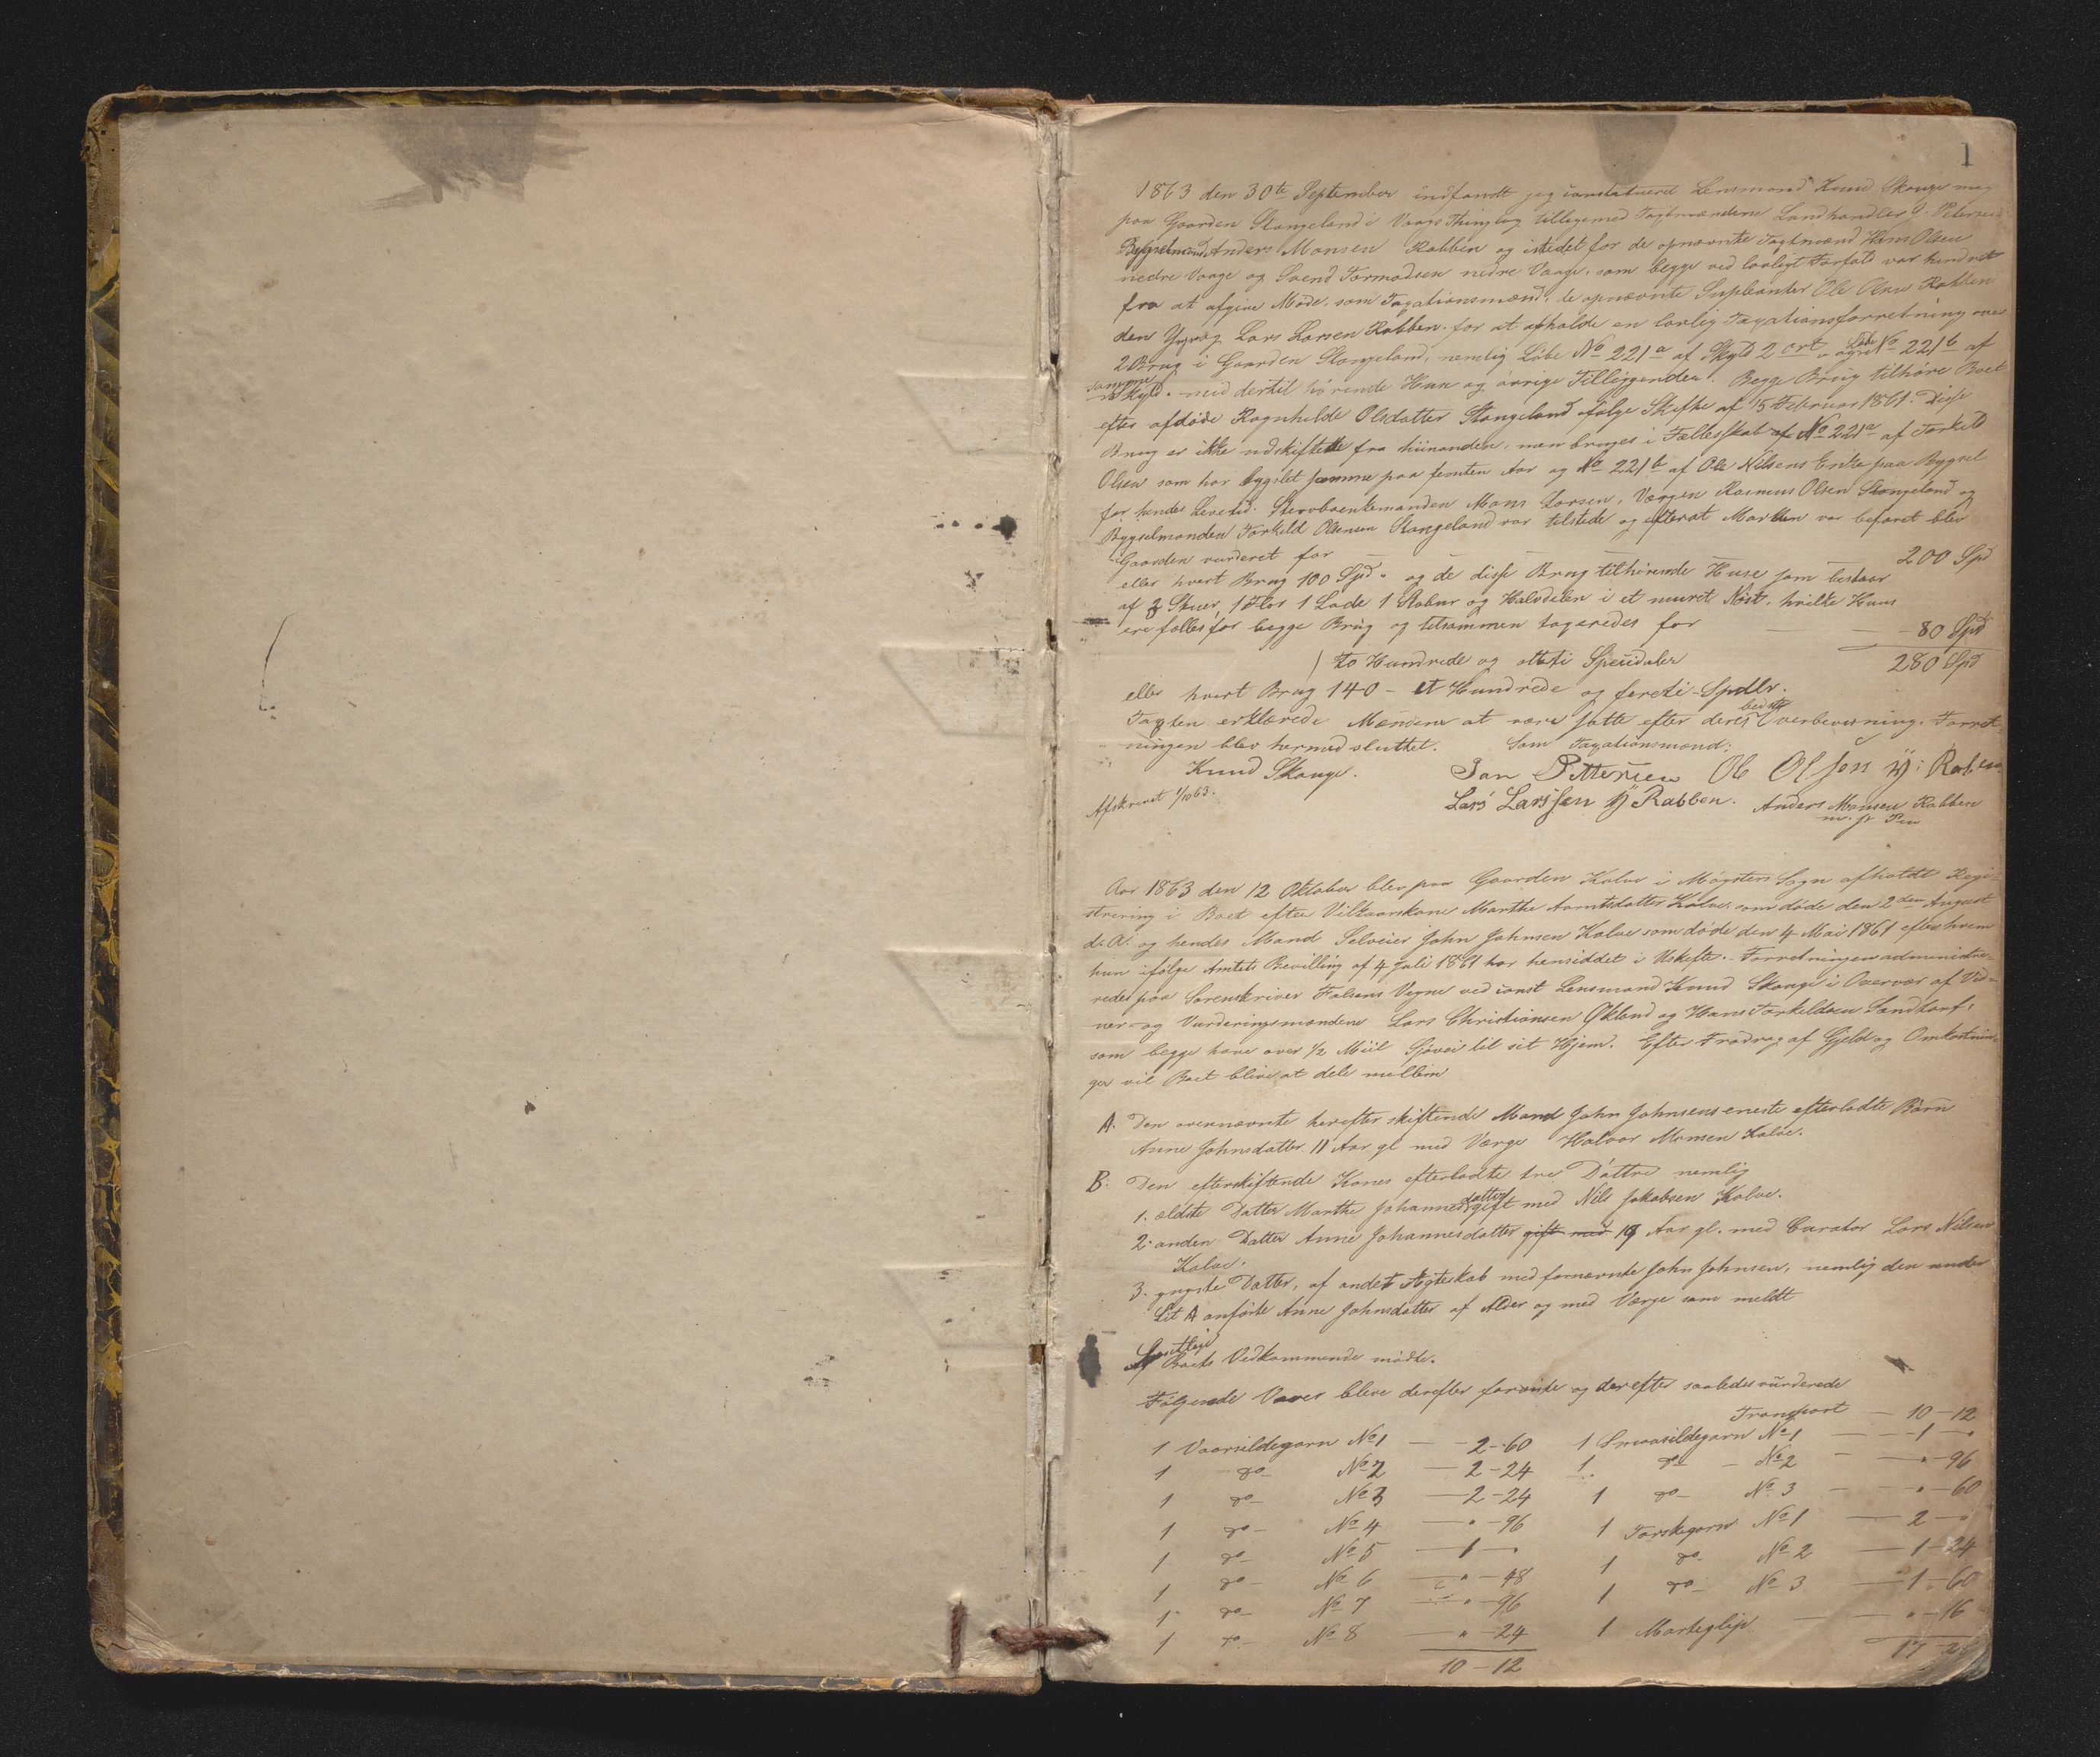 1
1863 den 30te September indfandt jeg constitueret Lensmand Knud Skauge mig
paa Gaarden Stangeland i Vaags Thinglag tilligemed Taxtmændene Landhandler J. Petersen
Bygselmand Anders Monsen Rabben og istedet for de opnævnte Taxtmænd Hans Olsen
nedre Vaage og Svend Tormodsen nedre Vaage, som begge ved lovligt Forfald var hindret
fra at afgive Møde, som Taxationsmænd, de opnævnte Supleanter Ole Olsen Rabben
den Yngre og Lars Larsen Rabben, for at afholde en lovlig Taxationsforretning over
2 Brug i Gaarden Stangeland, nemlig Løbe No 221a af Skyld 2 ort og Løbe No 221b af
samme Skyld, med dertil hørende Huse og øvrige Tilliggender. Begge Brug tilhøre Boet
efter afdøde Ragnhilde Olsdatter Stangeland ifølge Skifte af 15 Februar 1861. Disse
Brug er ikke udskiftede fra hinanden, men bruges i Fællesskab af No 221a af Torkild
Olsen som har bygslet samme paa femten Aar og No 221b af Ole Nilsens Enke paa Bygsel
for hendes Levetid. Stervboenkemanden Mons Larsen, Værgen Rasmus Olsen Stangeland og
Bygselmanden Torkild Olsen Stangeland var tilstede og efterat Marken var befaret blev
Gaarden vurderet for — — — 200 Spd
eller hvert Brug 100 Spd. og de disse Brug tilhørende Huse som bestaar
af 2 Stuer, 1 Flor 1 Lade 1 Stabur og Halvdelen i et muret Nøst, hvilke Huse
ere fælles for begge Brug og tilsammen taxeredes for — — 80 Spd
to Hundrede og otteti Speciedaler 280 Spd
eller hvert Brug 140 - et Hundrede ogføreti Spdlr.
Taxten erklærede Mændene at være satte efter deres bedste Overbeviisning. Forret-
ningen blev hermed sluttet. Som Taxationsmænd:
Knud Skauge. Jan Pettersen Ole Olsen y: Raben
Afskrevet 1/10 63. Lars Larssen y Rabben. Anders Monsen Rabben
m. f. Pen
Aar 1863 den 12 Oktober blev paa Gaarden Kalve i Møgsters Sogn afholdt Regi-
strering i Boet efter Vilkaarskone Marthe Arntsdatter Kalve, som døde den 2den August
d. A. og hendes Mand Selveier John Johnsen Kalve som døde den 4 Mai 1861 efter hvem
hun ifølge Amtets Bevilling af 4 Juli 1861 har hensiddet i Uskifte. Forretningen administre-
redes paa Sorenskriver Falsens Vegne ved const Lensmand Knud Skauge i Overvær af Vid-
ner- og Vurderingsmændene Lars Christiansen Økland og Hans Torkeldsen Landtorf,
som begge have over 1/2 Miil Sjøvei til sit Hjem. Efter Fradrag af Gjeld og Omkostnin-
ger vil Boet blive at dele mellem
A. Den ovennævnte herefter skiftende Mand John Johnsens eneste efterladte Barn
Anne Johnsdatter 11 Aar gl med Værge Halvor Monsen Kalve.
B. Den efterskiftende Kones efterladte tre Døttre nemlig
1. ældste Datter Marthe Johannesdatter gift med Nils Jakobsen Kalve.
2. anden Datter Anne Johannesdatter gift med 19 Aar gl. med Curator Lars Nilsen
Kalve.
3. yngste Datter, af andet Ægteskab med fornævnte John Johnsen, nemlig den under
Lit A anførte Anne Johnsdatter af Alder og med Værge som meldt
Samtlige Boets Vedkommende mødte.
Følgende Varer bleve derefter foreviste og derefter saaledes vurderede
Transport — 10-12
1 Vaarsildegarn No 1 — 2-60 1 Smaasildegarn No 1 — 1 — "
1 do No 2 — 2-24 1 do No 2 — " -96
1 do No 3 — 2-24 1 do No 3 — " -60
1 do No 4 — " -96 1 Torskegarn No 1 — 2 — "
1 do No 5 — 1 — " 1 do No 2 — 1-24
1 do No 6 — " -48 1 do No 3 — 1-60
1 do No 7 — " -96 1 Morteglip — " -16
1 do No 8 — " -24 17-
10-12